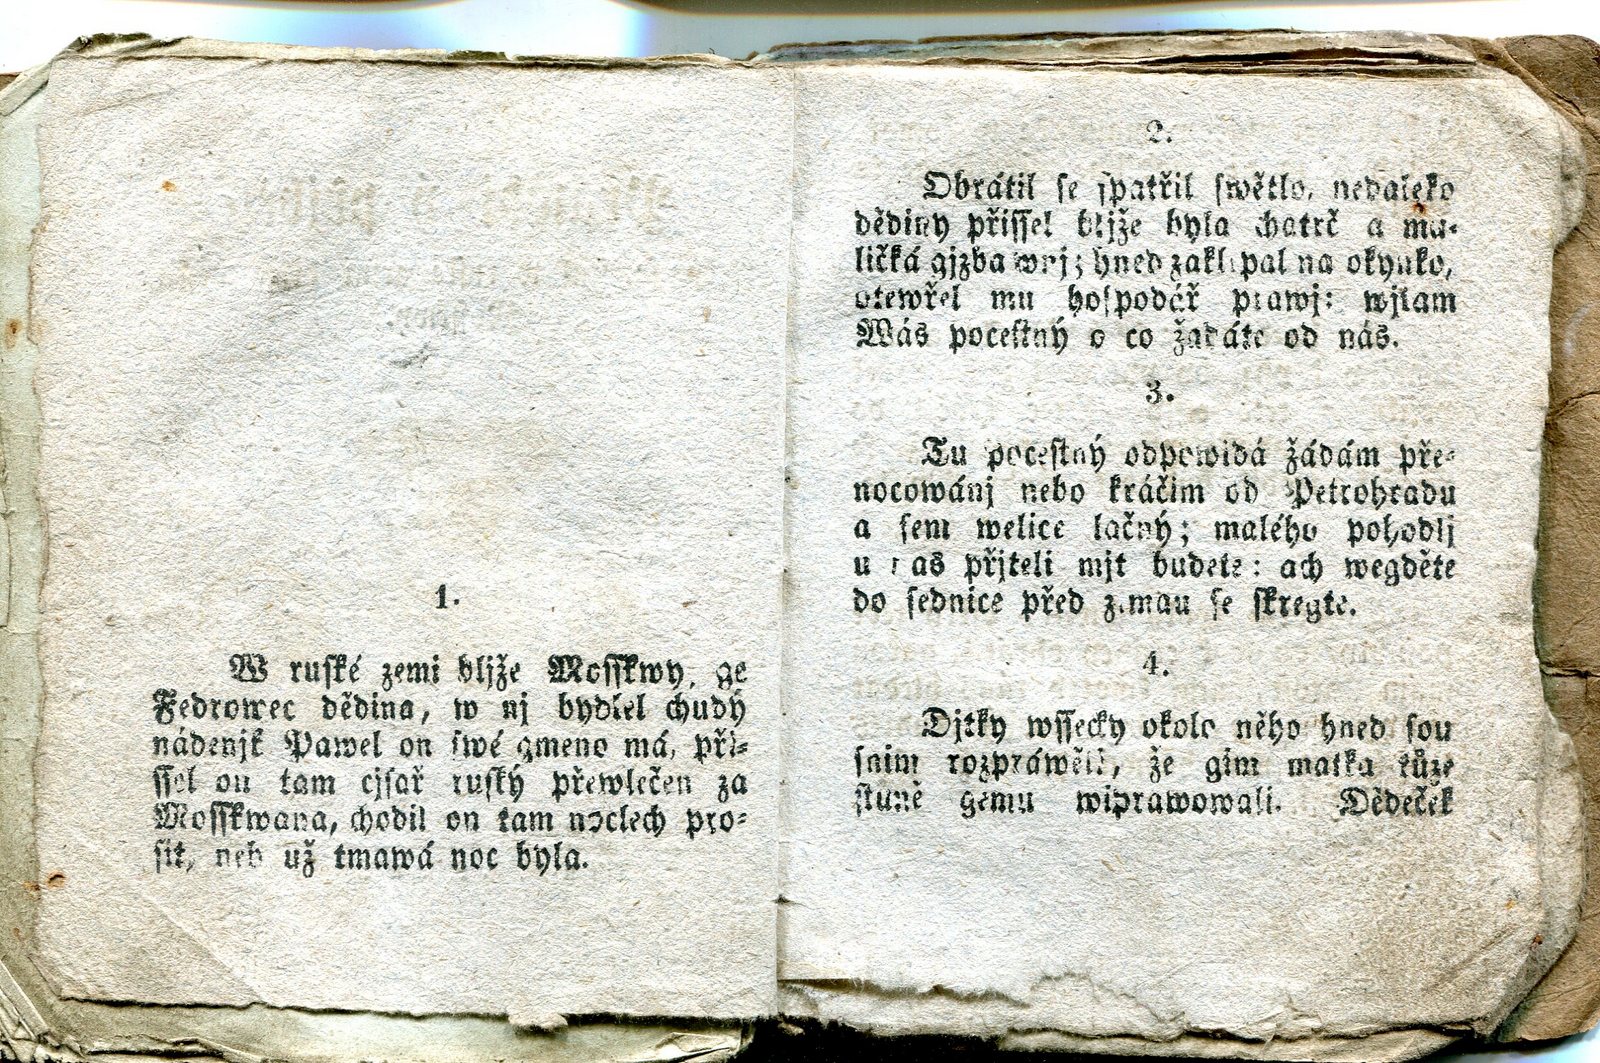 1.
W ruské zemi bljže Mosskwy, ge
Fedrowec dědina, w nj bydlel chudý
nádenjk Pawel on swé gmeno má, při-
ssel on tam cjsař ruský přewlečen za
Mosskwana, chodil on tam noclech pro-
sit, neb už tmawá noc byla.
2.
Obrátil se spatřil swětlo, nedaleko
dědiny přissel bljže byla chatrč a ma-
ličká gjzba wnj; hned zaklepal na okynko,
otewřel mu hospodář prawj: wjtam
Wás pocestný o co žadáte od nás.
3.
Tu pocestný odpowidá žádám pře-
nocowánj nebo kráčim od Petrohradu
a sem welice lačný; malého pohodlj
u nas přjteli mjt budete: ach wegděte
do sednice před zimau se skregte.
4.
Djtky wssecky okolo něho hned sou
snim rozpráwěli, že gim matka
gemu wiprawowali. Dědeček